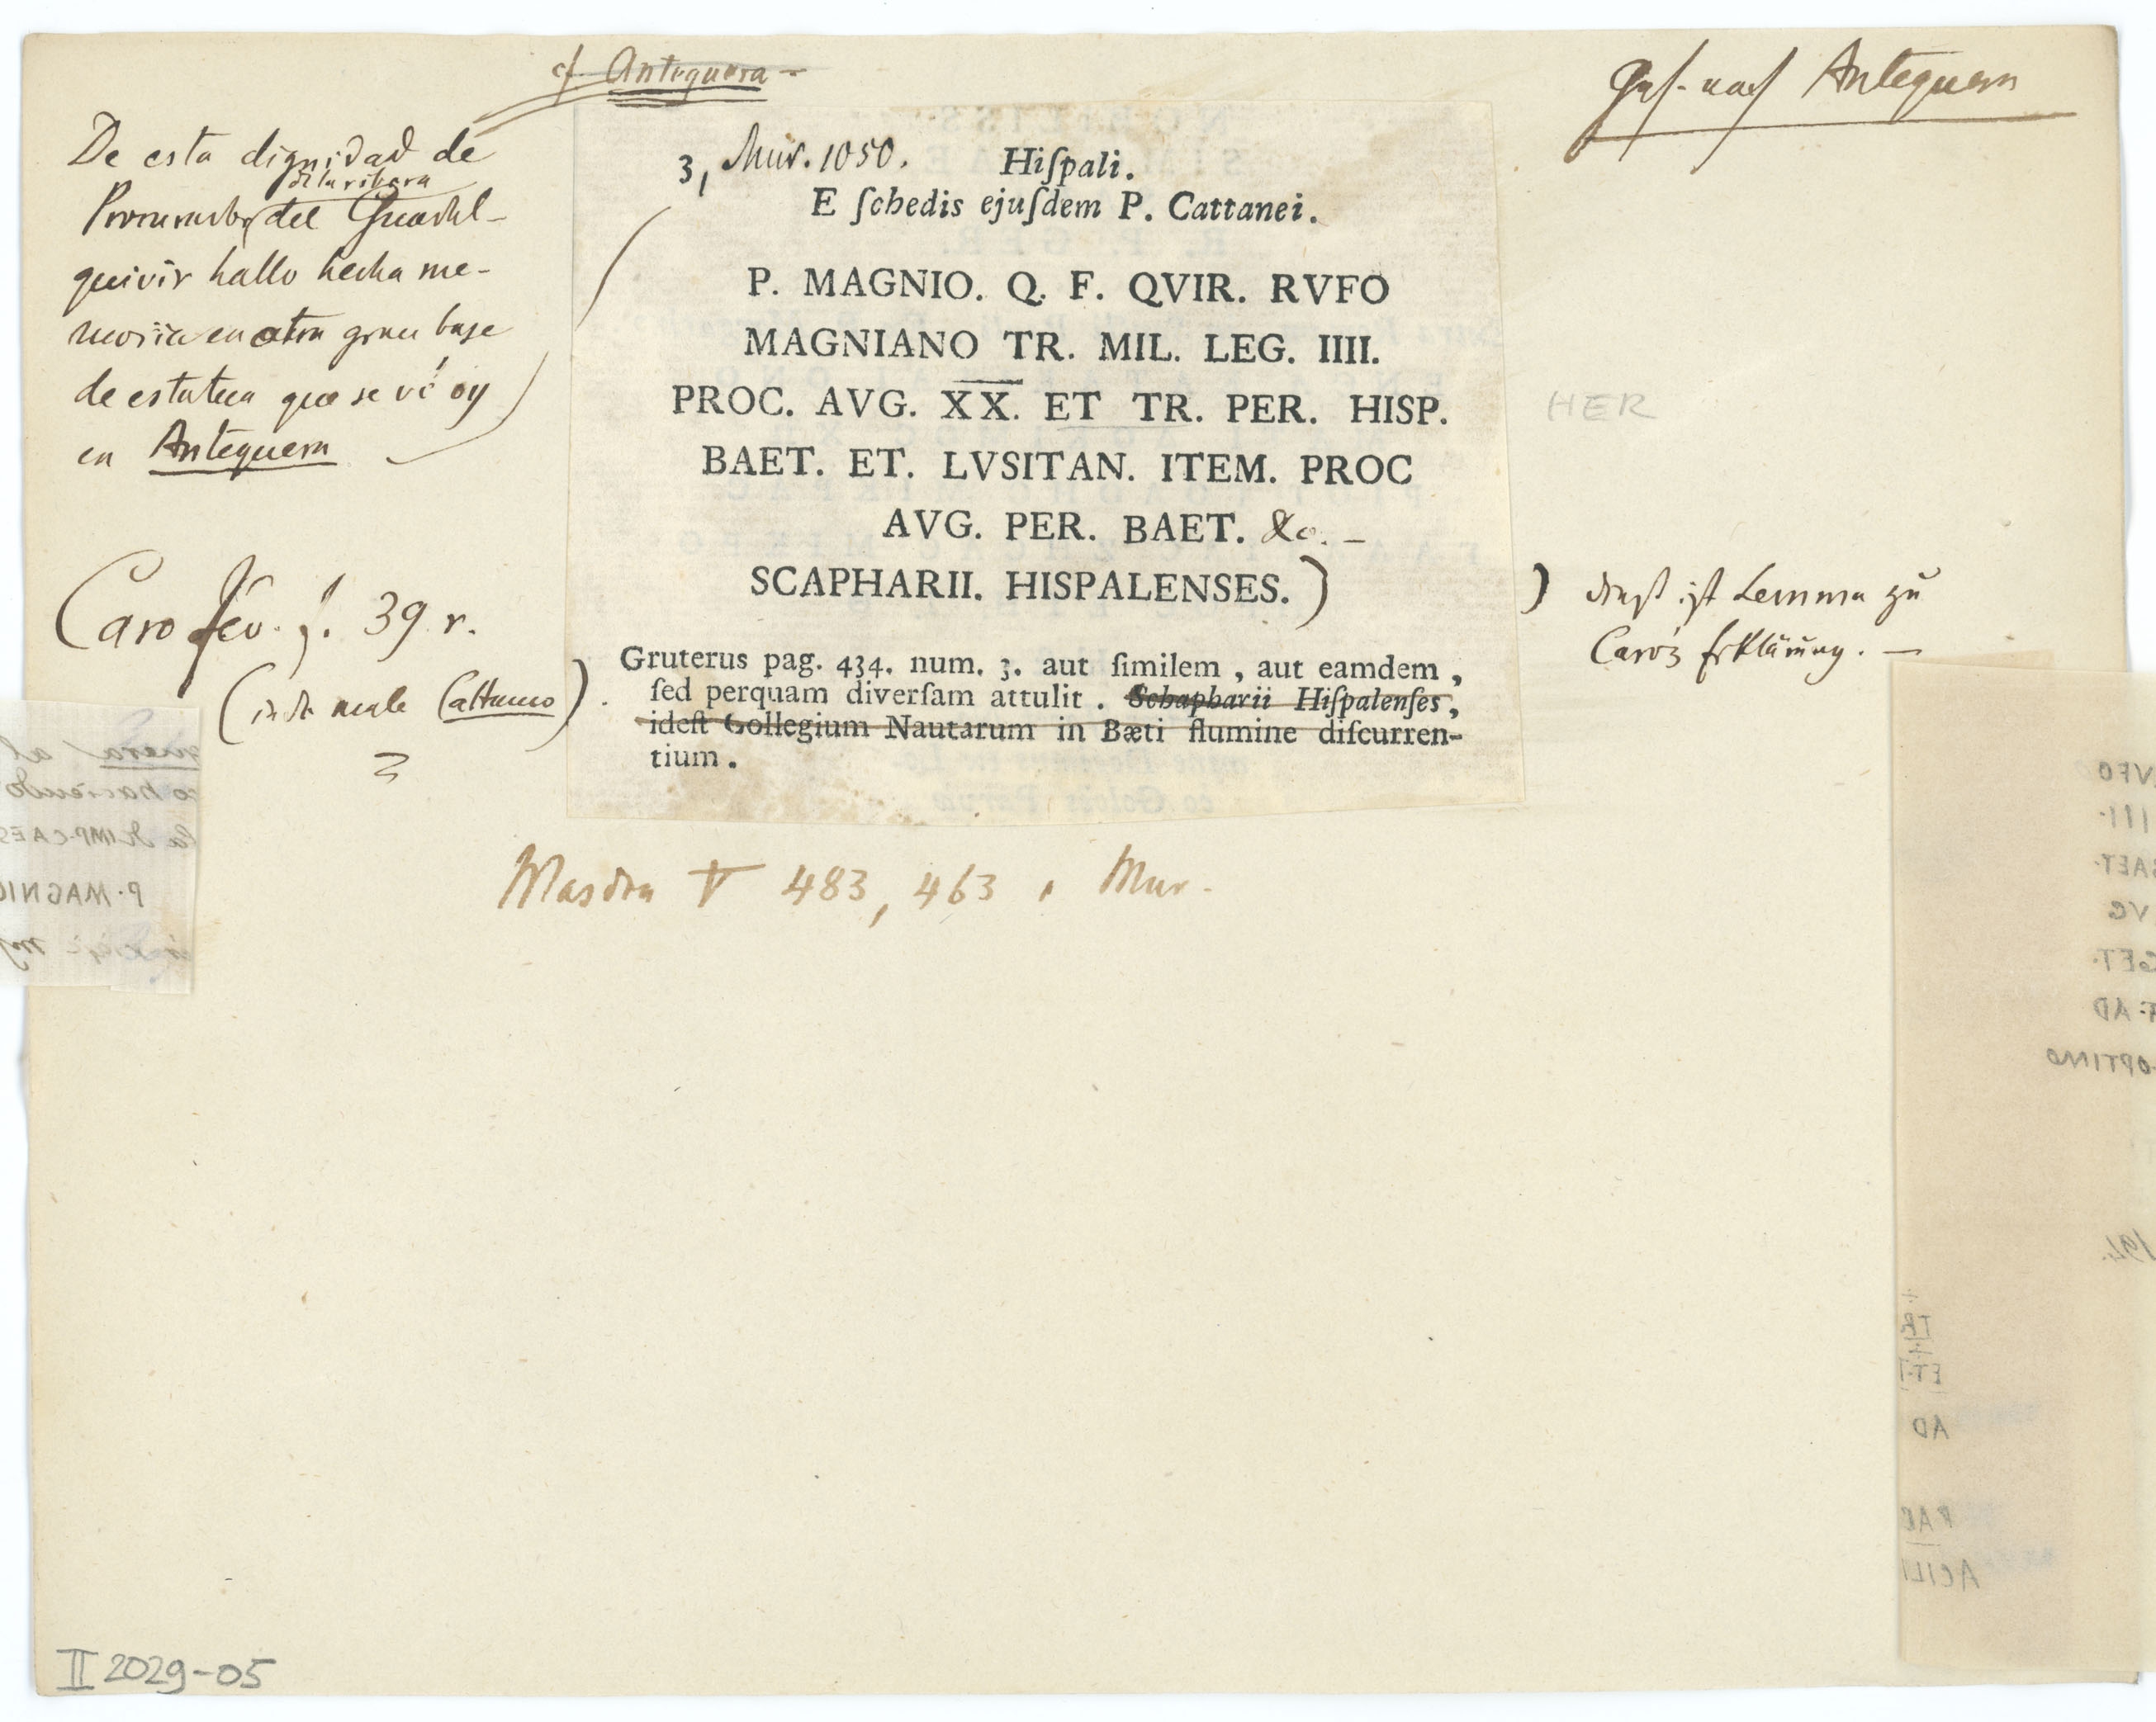 cf. Antequera -
Geh. nach Antequera
De esta dignidad de
de la ribera
Procurador del Guadal-
quivir hallo hecha me-
moria en otra gran base
de estatua que se vé oy
en Antequera
Caro Sev. f. 39 r.
(inde male Cattaneo).
3, Mur. 1050. Hiſpali.
E ſchedis ejuſdem P. Cattanei.
P. MAGNIO. Q. F. QVIR. RVFO
MAGNIANO TR. MIL. LEG. IIII.
PROC. AVG. XX. ET TR. PER. HISP.
BAET. ET. LVSITAN. ITEM. PROC
AVG. PER. BAET. &c. -
SCAPHARII. HISPALENSES.)
Gruterus pag. 434. num. 3. aut ſimilem, aut eamdem,
ſed perquam diverſam attulit. Schapharii Hiſpalenſes,
ideſt Collegium Nautarum in Bæti flumine diſcurren-
tium.
HER
) ist Lemma zu
Caro's Erklärung. —
Masdeu V 483, 463 Mur.
quera al
co haciendo
la d IMP·CAES
P·MAGNIO
VFO
III·
BAET·
VG
GET·
F·AD
OPTIMO
194.
TR
ET·T
AD
PAC
ACILI
II 2029-05